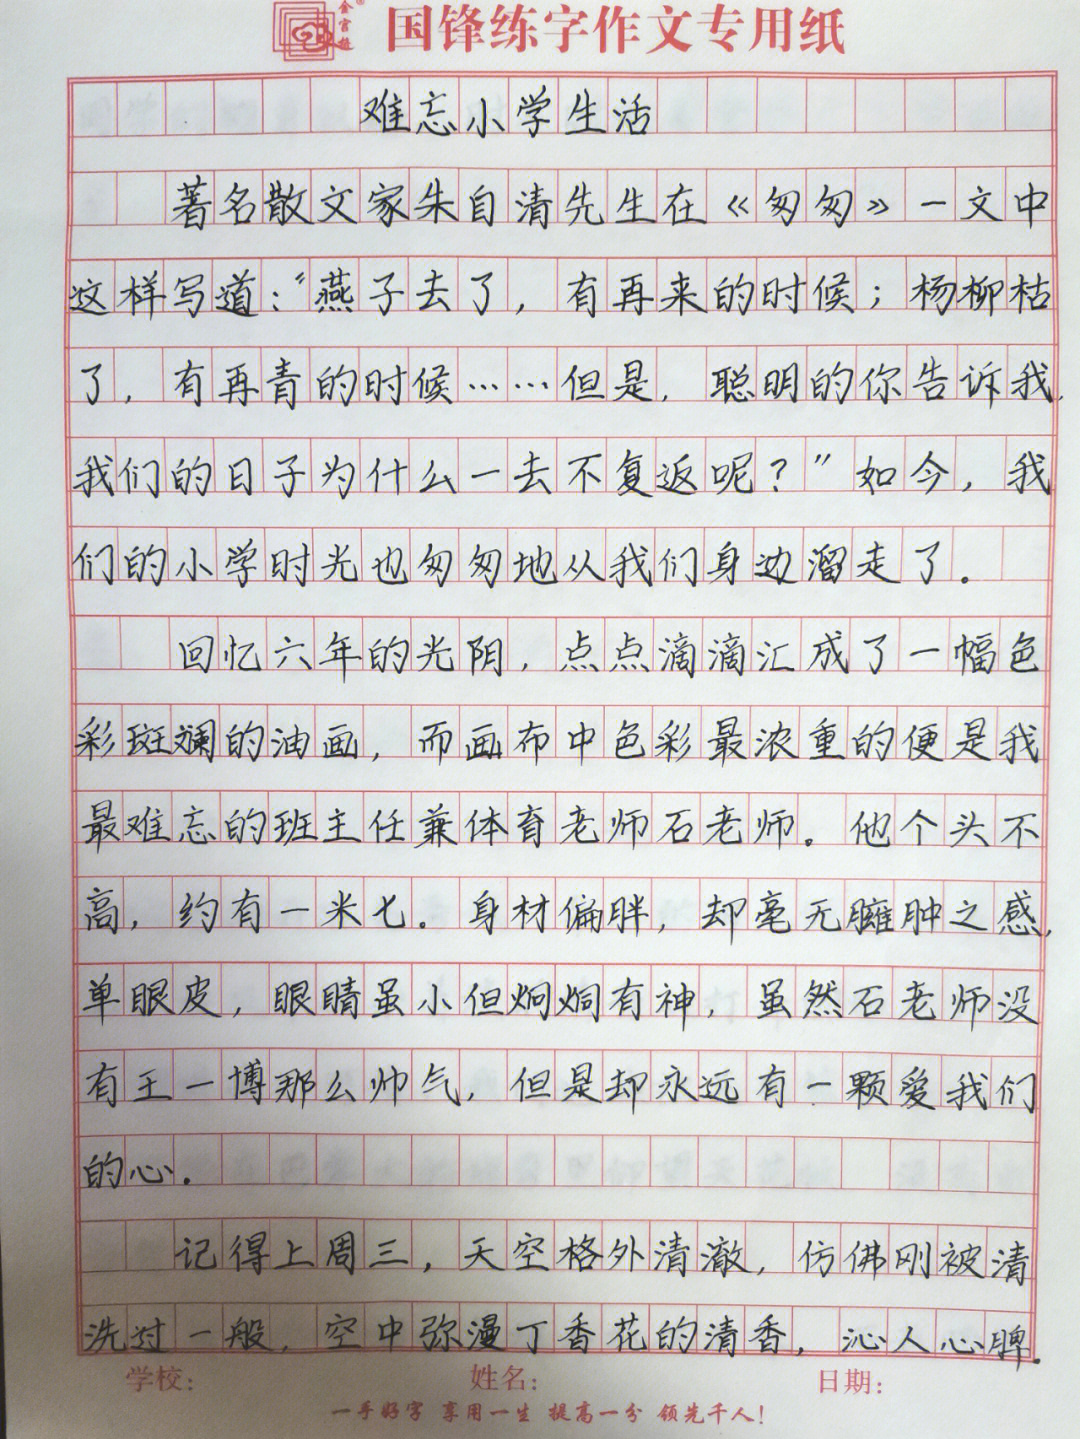 金宫格®
国锋练字作文专用纸
难忘小学生活
著名散文家朱自清先生在《匆匆》一文中
这样写道:“燕子去了,有再来的时候;杨柳枯
了,有再青的时候……但是,聪明的你告诉我,
我们的日子为什么一去不复返呢?”如今,我
们的小学时光也匆匆地从我们身边溜走了。
回忆六年的光阴,点点滴滴汇成了一幅色
彩斑斓的油画,而画布中色彩最浓重的便是我
最难忘的班主任兼体育老师石老师。他个头不
高,约有一米七。身材偏胖,却毫无臃肿之感,
单眼皮,眼睛虽小但炯炯有神,虽然石老师没
有王一博那么帅气,但是却永远有一颗爱我们
的心。
记得上周三,天空格外清澈,仿佛刚被清
洗过一般,空中弥漫丁香花的清香,沁人心脾。
学校: 姓名: 日期:
一手好字 享用一生 提高一分 领先千人!